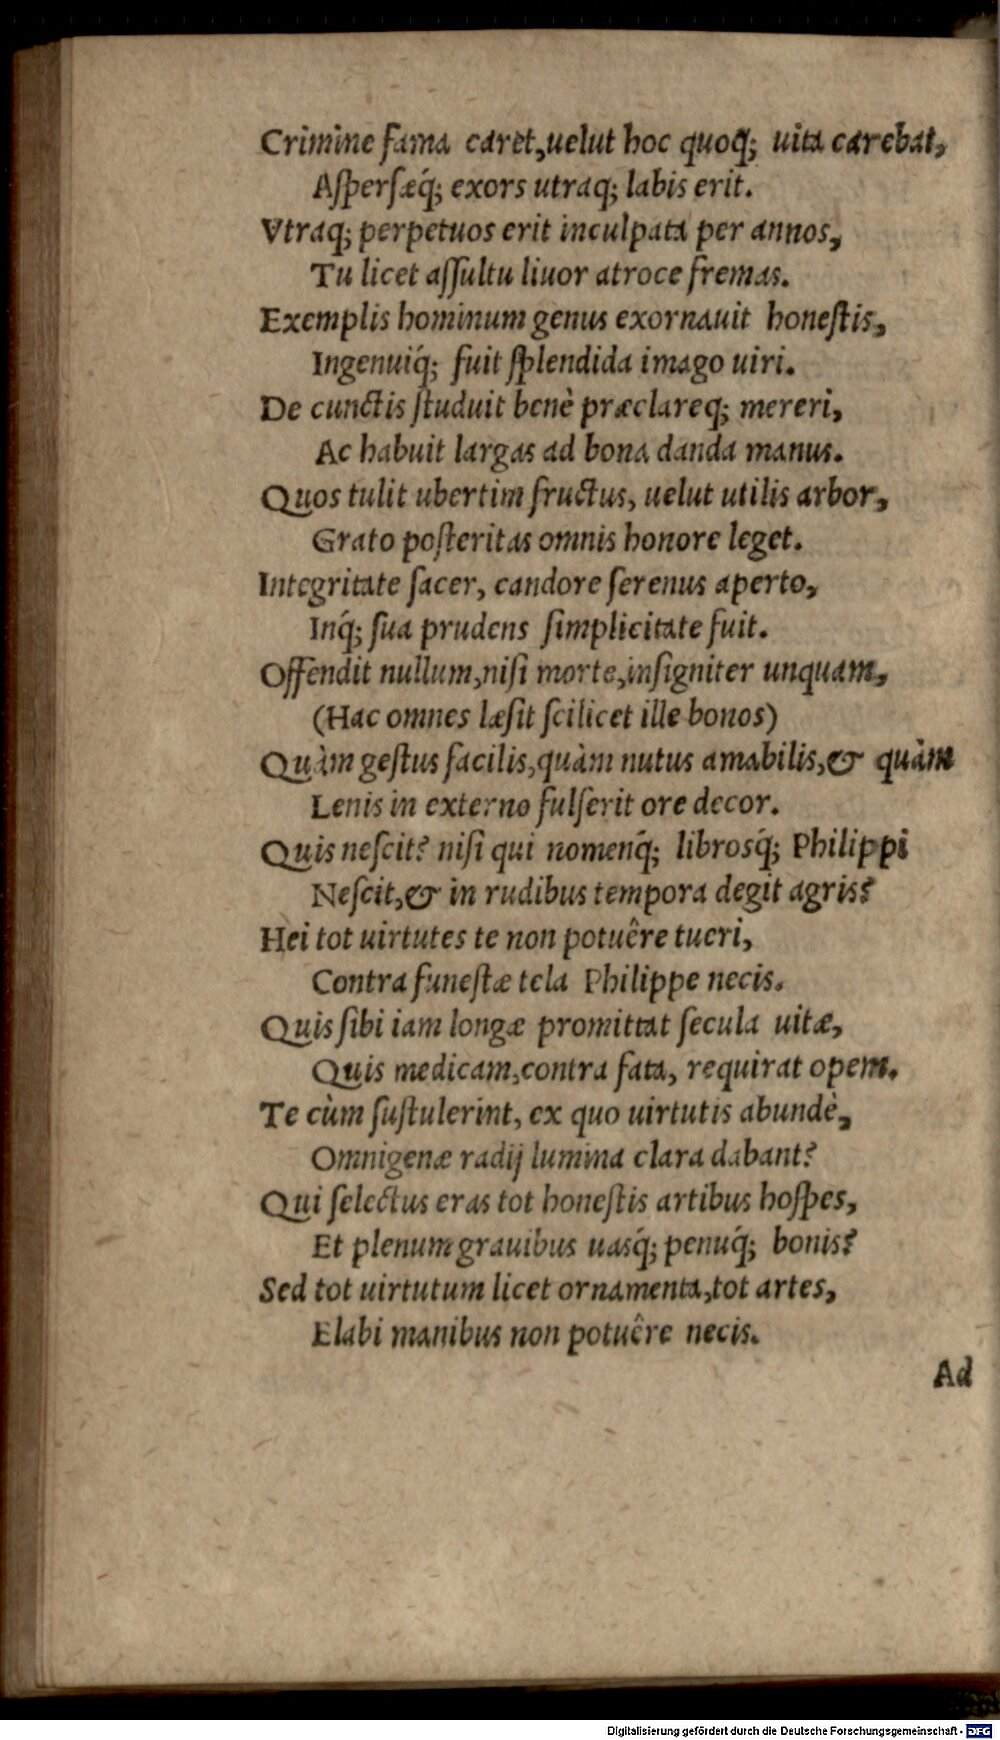 Crimine fama caret, uelut hoc quoq; uita carebat,
Aſperſæq́; exors utraq; labis erit.
Vtraq; perpetuos erit inculpata per annos,
Tu licet aſſultu liuor atroce fremas.
Exemplis hominum genus exornauit honeſtis,
Ingenuiq́; fuit ſplendida imago uiri.
De cunctis ſtuduit benè præclareq; mereri,
Ac habuit largas ad bona danda manus.
Quos tulit ubertim fructus, uelut utilis arbor,
Grato poſteritas omnis honore leget.
Integritate ſacer, candore ſerenus aperto,
Inq́; ſua prudens ſimplicitate fuit.
Offendit nullum, niſi morte, inſigniter unquam,
(Hac omnes læſit ſcilicet ille bonos)
Quàm geſtus facilis, quàm nutus amabilis, & quàm
Lenis in externo fulſerit ore decor.
Quis neſcit? niſi qui nomenq́; librosq́; Philippi
Neſcit, & in rudibus tempora degit agris?
Hei tot uirtutes te non potuêre tueri,
Contra funeſtæ tela Philippe necis.
Quis ſibi iam longæ promittat ſecula uitæ,
Quis medicam, contra fata, requirat opem.
Te cùm ſuſtulerint, ex quo uirtutis abundè,
Omnigenæ radij lumina clara dabant?
Qui ſelectus eras tot honeſtis artibus hoſpes,
Et plenum grauibus uasq́; penuq́; bonis?
Sed tot uirtutum licet ornamenta, tot artes,
Elabi manibus non potuêre necis.
Ad
Digitalisierung gefördert durch die Deutsche Forschungsgemeinschaft - DFG